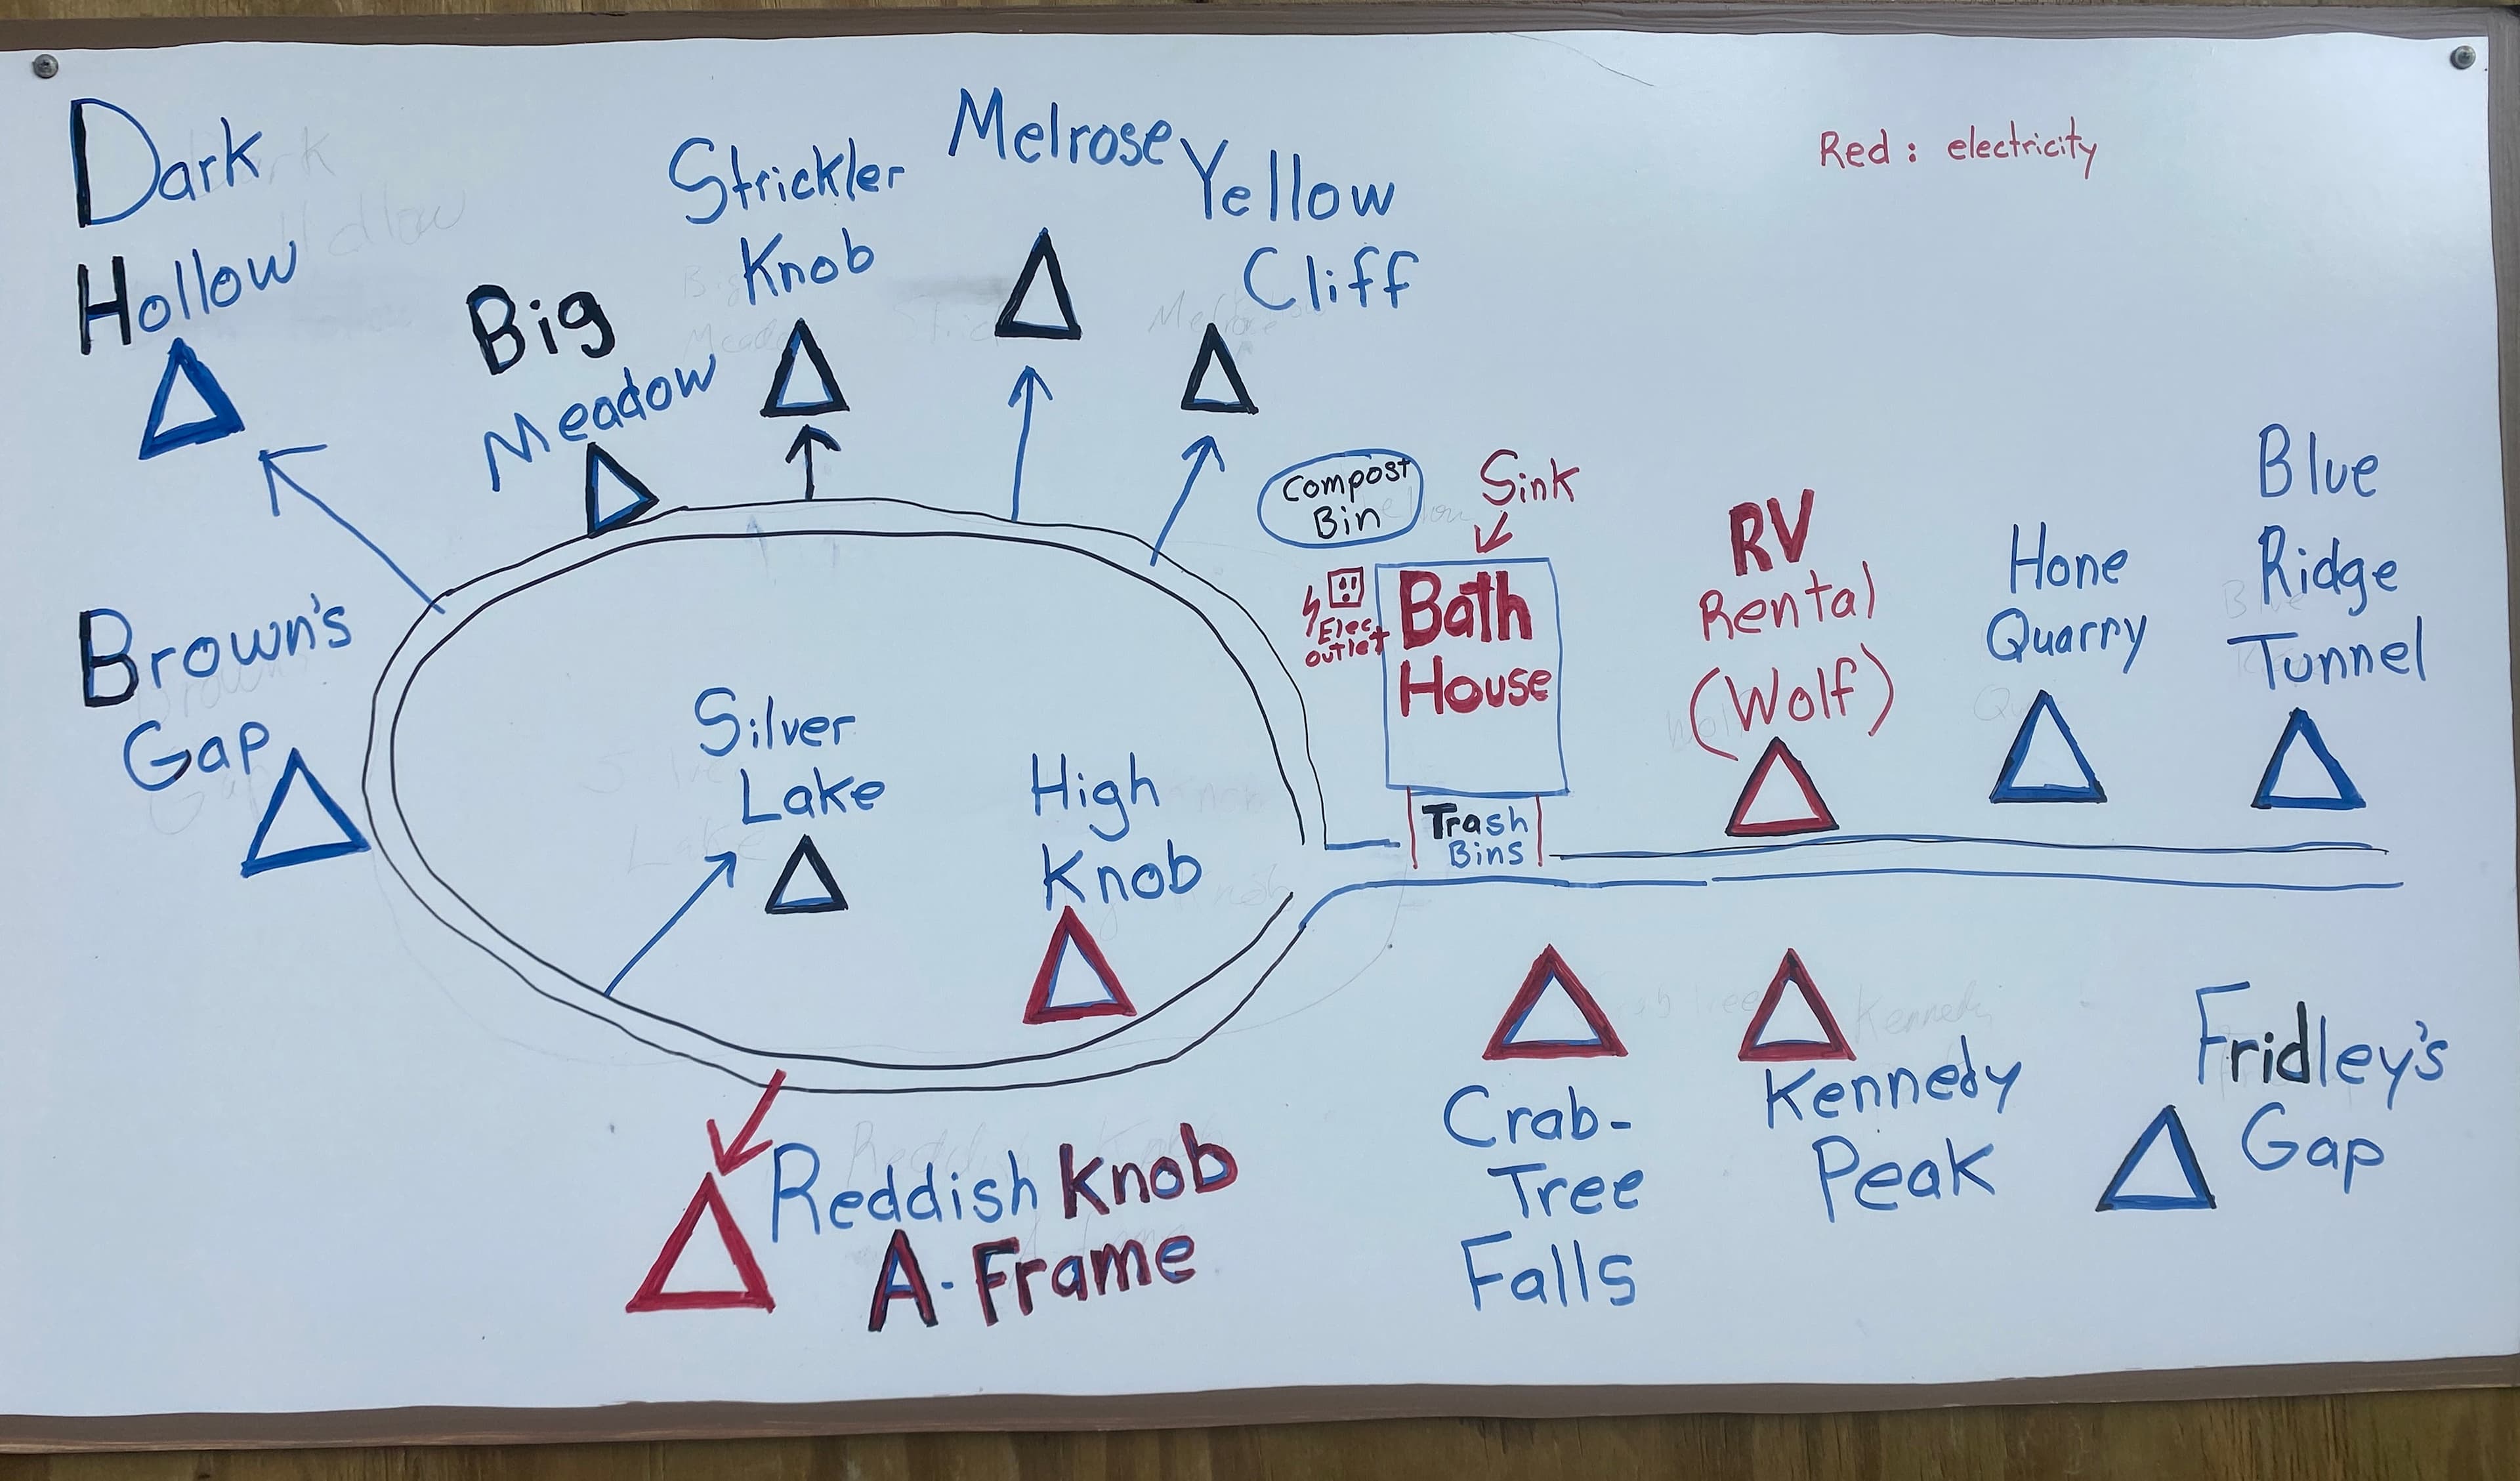 Dark
Hollow
Big
Meadow
Strickler
Knob
Melrose
Yellow
Cliff
Red: electricity
Compost
Bin
Sink
Elec
outlet
Bath
House
Trash
Bins
RV
Rental
(Wolf)
Hone
Quarry
Blue
Ridge
Tunnel
Brown's
Gap
Silver
Lake
High
Knob
Reddish Knob
A-Frame
Crab-
Tree
Falls
Kennedy
Peak
Fridley's
Gap